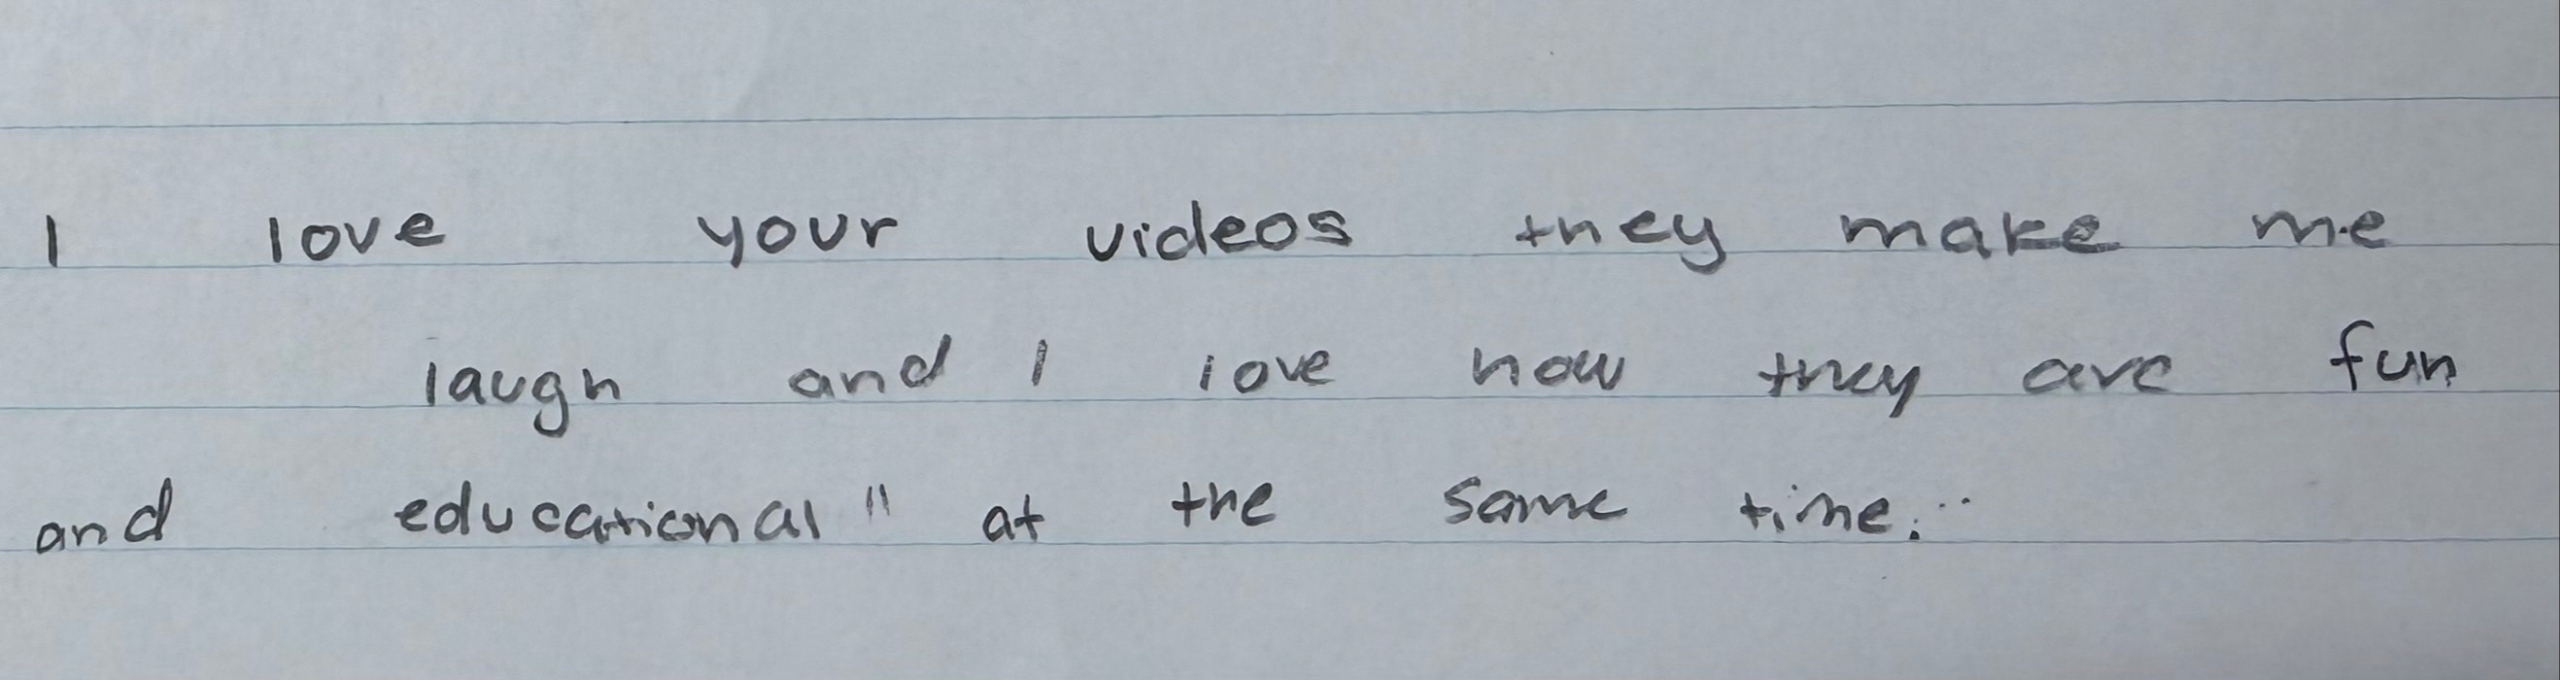 I love your videos they make me
laugh and I love how they are fun
and educational" at the same time.